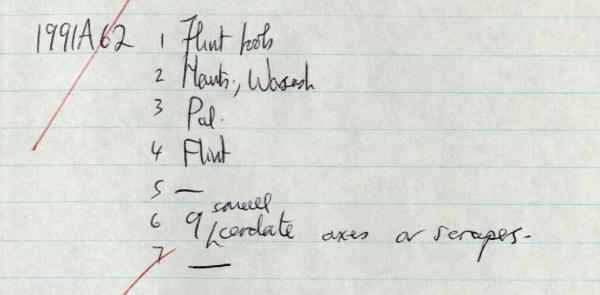 1991A62 1 Flint tools
2 Hants., Warsash
3 Pal.
4 Flint
5 —
6 9 small cordate axes or scrapes.
7 —